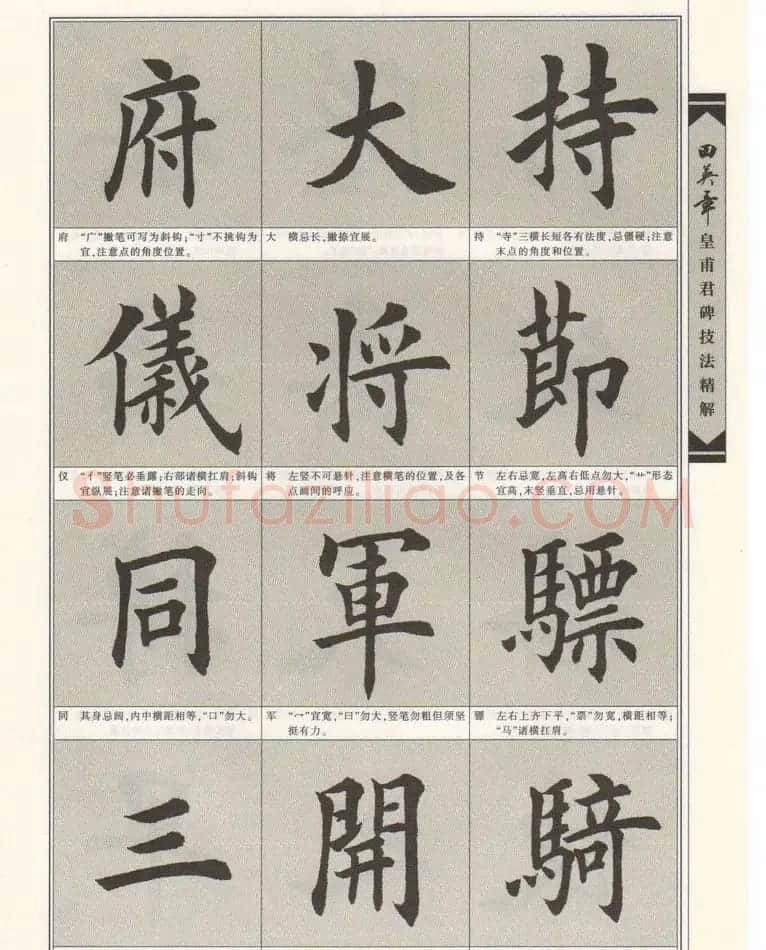 田英章 皇甫君碑技法精解
持
持 “寺”三横长短各有法度,忌僵硬;注意
末点的角度和位置。
莭
节 左右忌宽,左高右低点勿大,“艹”形态
宜高,末竖垂直,忌用悬针。
驃
骠 左右上齐下平,“票”勿宽,横距相等;
“马”诸横扛肩。
騎
大
大 横忌长,撇捺宜展。
将
将 左竖不可悬针,注意横笔的位置,及各
点画间的呼应。
軍
军 “冖”宜宽,“曰”勿大,竖笔勿粗但须坚
挺有力。
開
府
府 “广”撇笔可写为斜钩;“寸”不挑钩为
宜,注意点的角度位置。
儀
仪 “亻”竖笔必垂露;右部诸横扛肩;斜钩
宜纵展;注意诸撇笔的走向。
同
同 其身忌阔,内中横距相等,“口”勿大。
三
Shufaziliao.COM